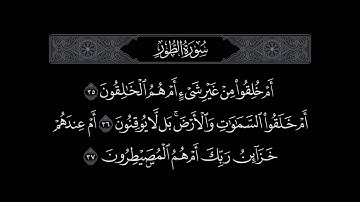 سُورَةُ الطُّورِ
أَمْ خُلِقُوا۟ مِنْ غَيْرِ شَىْءٍ أَمْ هُمُ ٱلْخَـٰلِقُونَ ٣٥
أَمْ خَلَقُوا۟ ٱلسَّمَـٰوَٰتِ وَٱلْأَرْضَ ۚ بَل لَّا يُوقِنُونَ ٣٦ أَمْ عِندَهُمْ
خَزَآئِنُ رَبِّكَ أَمْ هُمُ ٱلْمُصَۣيْطِرُونَ ٣٧